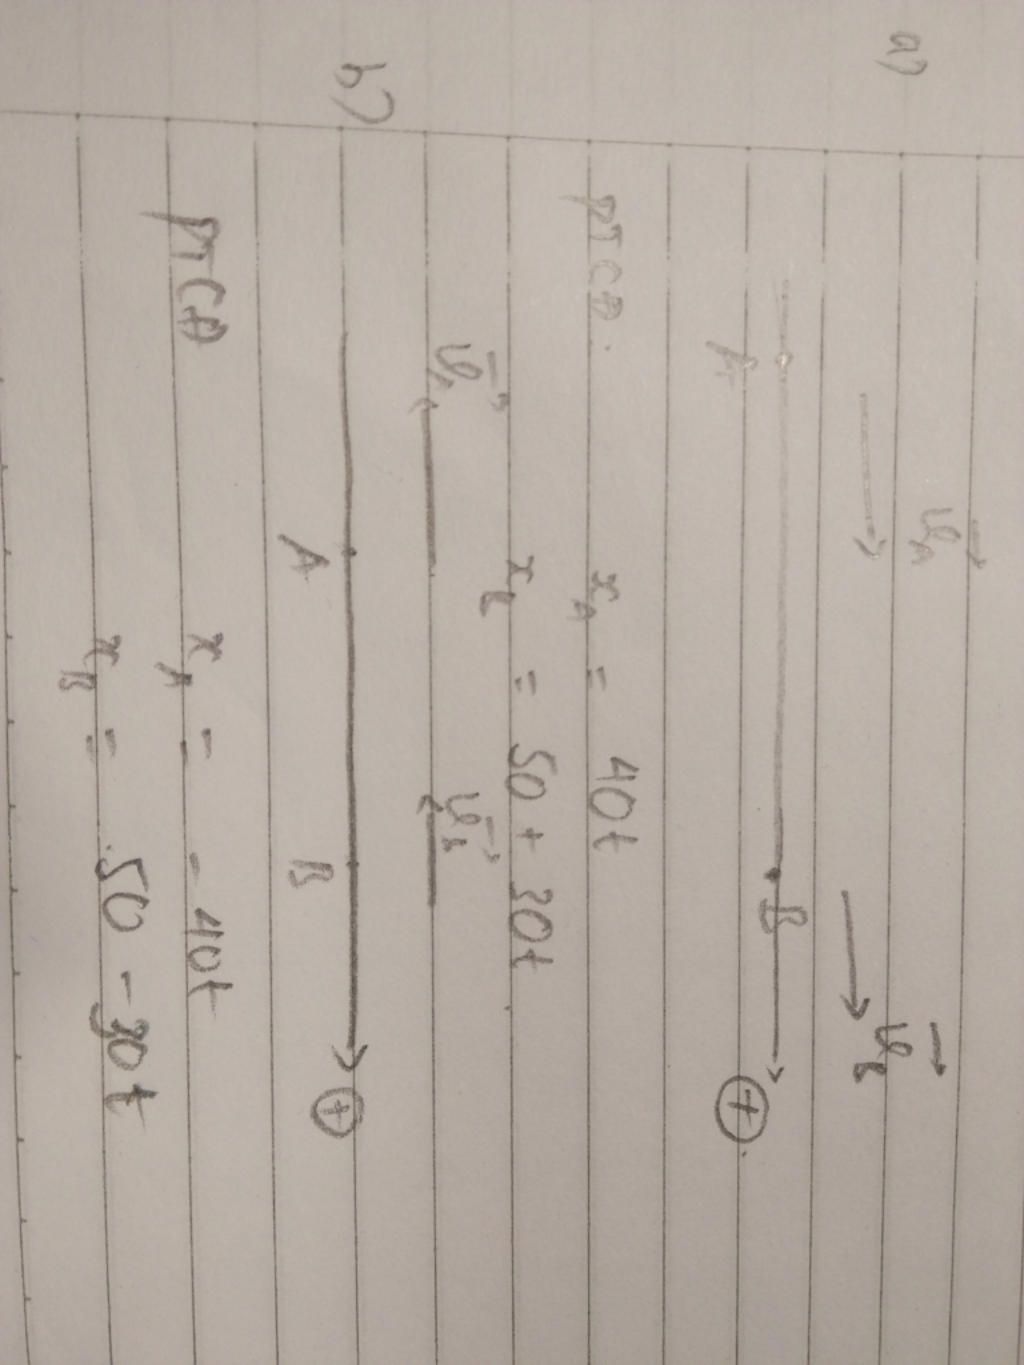 a)
v⃗A v⃗B
A B ⊕
PTCĐ.
xA = 40t
xB = 50 + 30t
b)
v⃗A v⃗B
A B ⊕
PTCĐ
xA = - 40t
xB = 50 - 30t